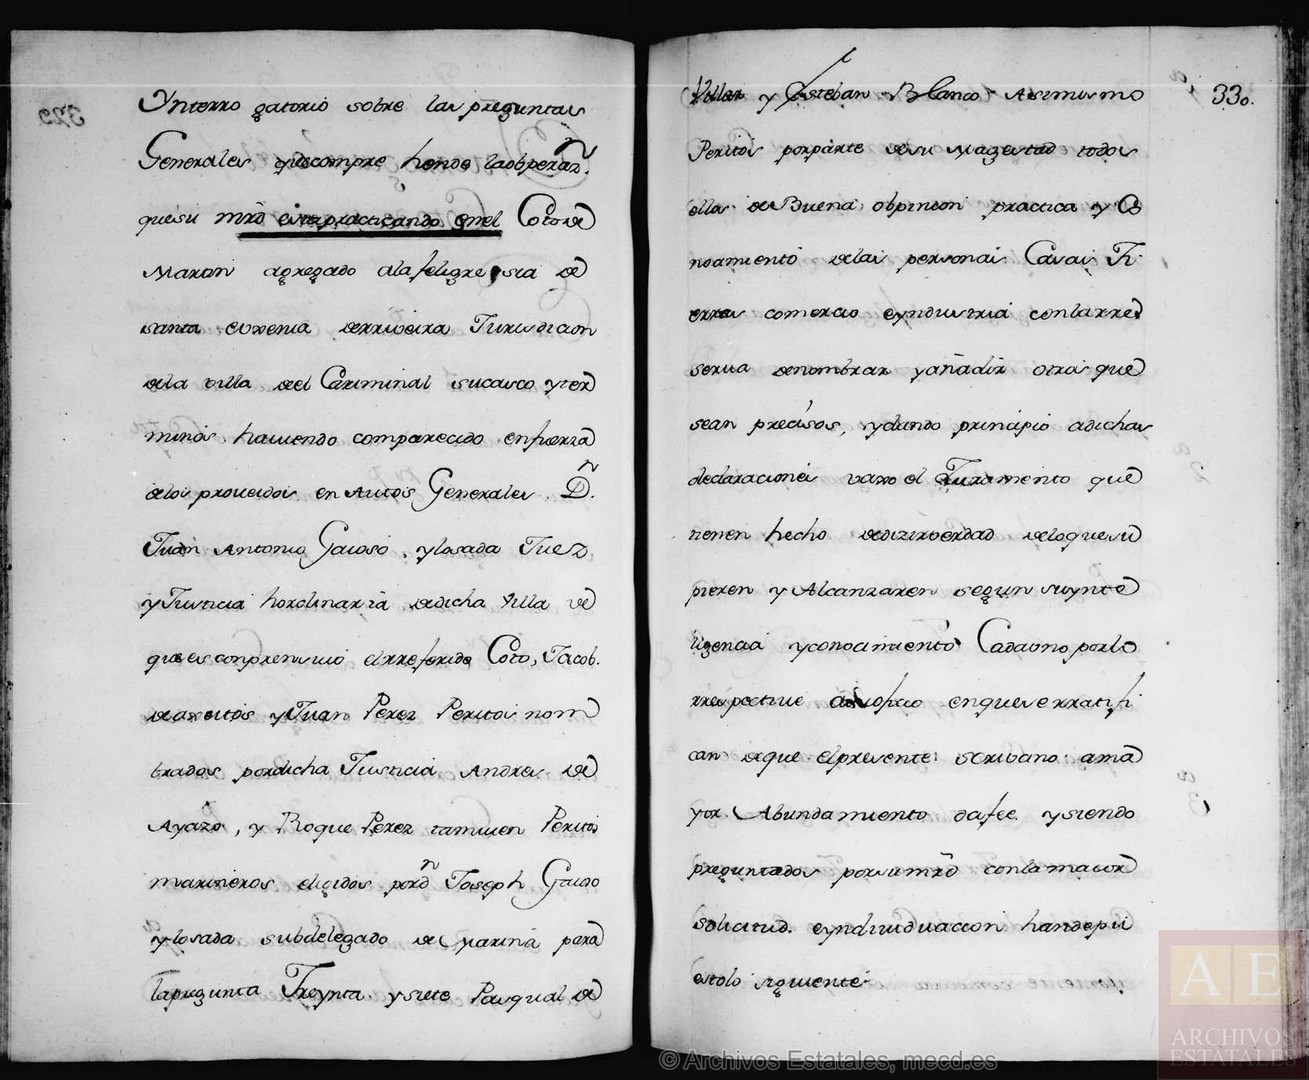 Ynterro gatorio sobre las preguntas
Generales que compre hende la obperaz.n
que su mrd está practicando en el Coto de
Maxan agregado a la feligresia de
santa euxenia de rriveira Jurisdicion
de la villa del Caraminal su casco y ter
minos, haviendo comparecido en fuerza
de los proveidos en Autos Generales D.n
Juan Antonio Gaioso, y losada Juez
y Justicia hordinaria de dicha Villa de
que es conprensivo el rreferido Coto, Jacob.
y Juan Perez Peritos nom
brados por dicha Justicia Andres de
Ayazo, y Roque Perez tamvien Peritos
marineros elegidos por dn Joseph Gaioso
y losada subdelegado de Marina para
la pregunta Treynta y siete Pasqual de
330.
Villar y Esteban Blanco Asimismo
Peritos por parte de su Magestad todos
ellos de Buena obpinion practica y Co
nocimiento de las personas Casas Ti
erras comercio e yndustria con la rre
serva de nombrar y añadir otros que
sean precisos, y dando principio a dichas
declaraciones vaxo el Juramento que
tienen hecho de dizir verdad de lo que su
pieren y Alcanzaren segun su ynte
ligencia y conocimiento Cada uno por lo
rrespective a su oficio en que se rratifi
can de que el presente scribano a ma
yor Abundamiento da fee y siendo
preguntados por su mrd con la maior
solicitud e yndividuacion han depu
esto lo siguiente
© Archivos Estatales, mecd.es
AE
ARCHIVOS
ESTATALES